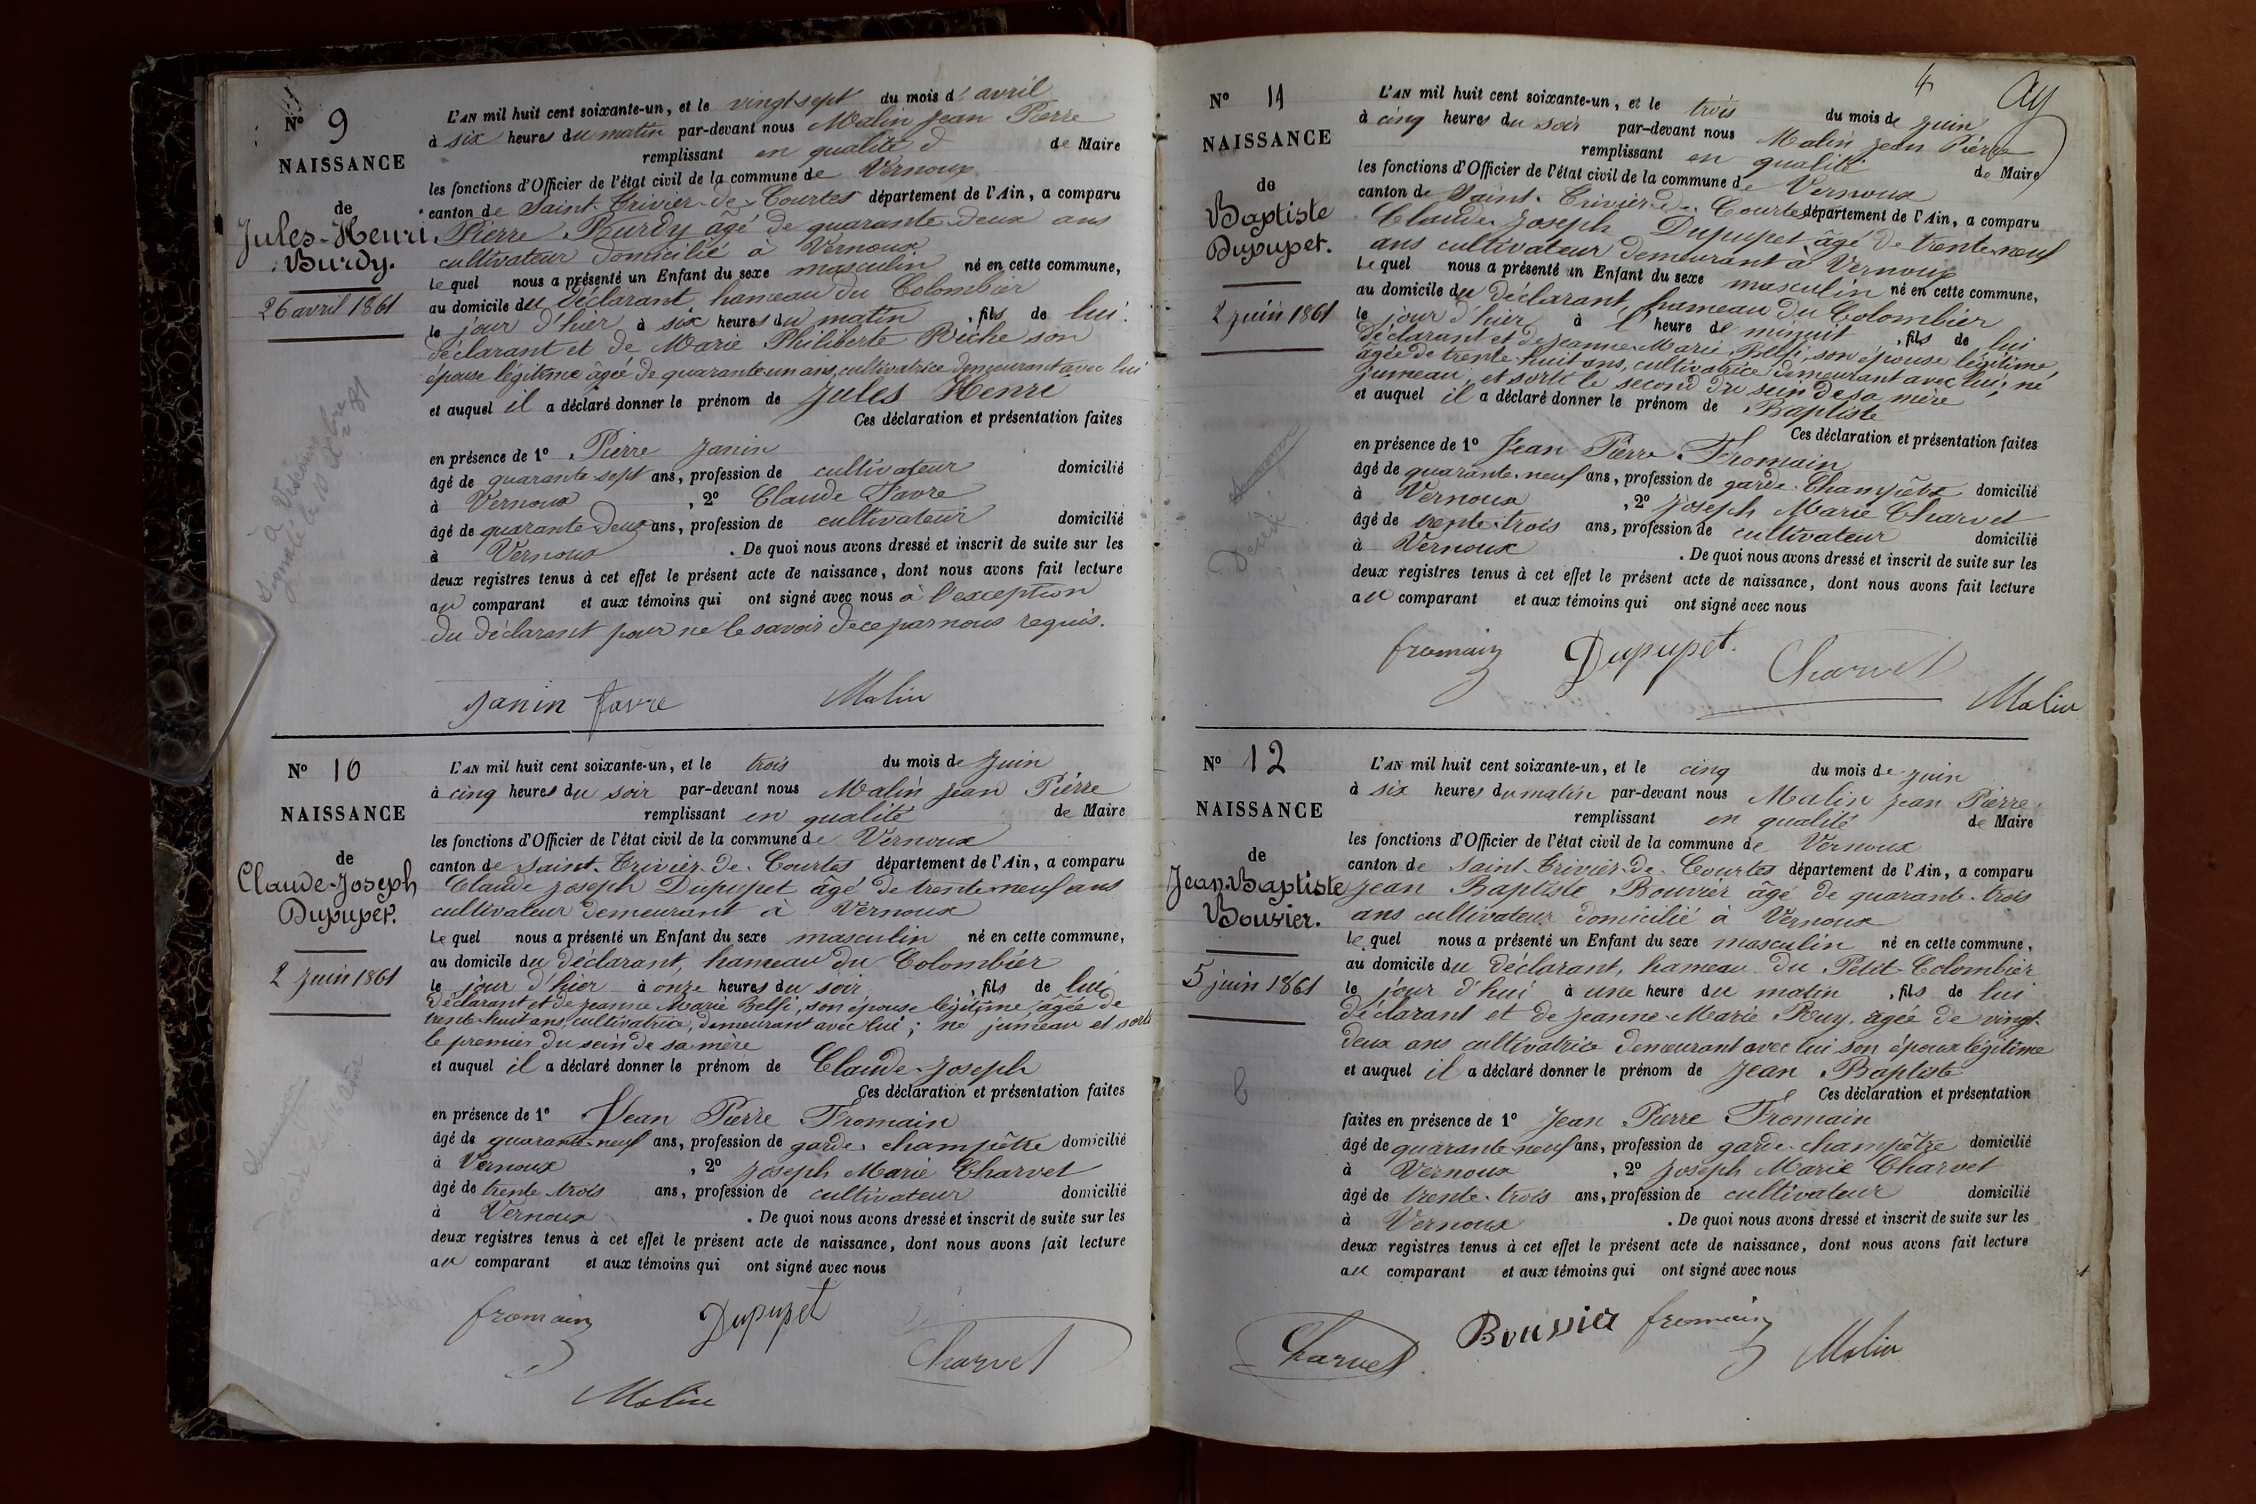 N° 9
NAISSANCE
de
Jules-Henri
Burdy.
26 avril 1861
L'AN mil huit cent soixante-un, et le vingt sept du mois d'avril
à six heures du matin par-devant nous Malin Jean Pierre
remplissant en qualité d de Maire
les fonctions d'Officier de l'état civil de la commune de Vernoux
canton de Saint-Trivier-de-Courtes département de l'Ain, a comparu
Pierre Burdy âgé de quarante-deux ans
cultivateur domicilié à Vernoux
Lequel nous a présenté un Enfant du sexe masculin né en cette commune,
au domicile du déclarant, hameau du Colombier
le jour d'hier à six heures du matin, fils de lui
déclarant et de Marie Philiberte Riche son
épouse légitime âgée de quarante un ans, cultivatrice demeurant avec lui
et auquel il a déclaré donner le prénom de Jules Henri
Ces déclaration et présentation faites
en présence de 1° Pierre Janin
âgé de quarante-sept ans, profession de cultivateur domicilié
à Vernoux, 2° Claude Favre
âgé de quarante deux ans, profession de cultivateur domicilié
à Vernoux. De quoi nous avons dressé et inscrit de suite sur les
deux registres tenus à cet effet le présent acte de naissance, dont nous avons fait lecture
au comparant et aux témoins qui ont signé avec nous à l'exception
du déclarant pour ne le savoir de ce par nous requis.
Janin favre Malin
N° 10
NAISSANCE
de
Claude-Joseph
Dupupet.
2 Juin 1861
L'AN mil huit cent soixante-un, et le trois du mois de Juin
à cinq heures du soir par-devant nous Malin Jean Pierre
remplissant en qualité de Maire
les fonctions d'Officier de l'état civil de la commune de Vernoux
canton de Saint-Trivier-de-Courtes département de l'Ain, a comparu
Claude Joseph Dupupet âgé de trente-neuf ans
cultivateur demeurant à Vernoux
Lequel nous a présenté un Enfant du sexe masculin né en cette commune,
au domicile du déclarant, hameau du Colombier
le jour d'hier à onze heures du soir, fils de lui
déclarant et de Jeanne Marie Belfi, son épouse légitime, âgée de
trente-huit ans, cultivatrice, demeurant avec lui; né jumeau et sorti
le premier du sein de sa mère
et auquel il a déclaré donner le prénom de Claude-Joseph
Ces déclaration et présentation faites
en présence de 1° Jean Pierre Fromain
âgé de quarante-neuf ans, profession de garde-champêtre domicilié
à Vernoux, 2° Joseph Marie Charvet
âgé de trente-trois ans, profession de cultivateur domicilié
à Vernoux. De quoi nous avons dressé et inscrit de suite sur les
deux registres tenus à cet effet le présent acte de naissance, dont nous avons fait lecture
au comparant et aux témoins qui ont signé avec nous
fromain Dupupet Charvet
Malin
4
N° 11
NAISSANCE
de
Baptiste
Dupupet.
2 juin 1861
L'AN mil huit cent soixante-un, et le trois du mois de Juin
à cinq heures du soir par-devant nous Malin Jean Pierre
remplissant en qualité de Maire
les fonctions d'Officier de l'état civil de la commune de Vernoux
canton de Saint-Trivier-de-Courtes département de l'Ain, a comparu
Claude Joseph Dupupet, âgé de trente-neuf
ans cultivateur demeurant à Vernoux
Lequel nous a présenté un Enfant du sexe masculin né en cette commune,
au domicile du déclarant hameau du Colombier
le jour d'hier à l' heure de minuit, fils de lui
déclarant et de Jeanne-Marie Belfi, son épouse légitime,
âgée de trente-huit ans, cultivatrice demeurant avec lui; né
jumeau, et sorti le second du sein de sa mère
et auquel il a déclaré donner le prénom de Baptiste
Ces déclaration et présentation faites
en présence de 1° Jean Pierre Fromain
âgé de quarante-neuf ans, profession de garde-Champêtre domicilié
à Vernoux, 2° Joseph Marie Charvet
âgé de trente-trois ans, profession de cultivateur domicilié
à Vernoux. De quoi nous avons dressé et inscrit de suite sur les
deux registres tenus à cet effet le présent acte de naissance, dont nous avons fait lecture
au comparant et aux témoins qui ont signé avec nous
fromain Dupupet. Charvet
Malin
N° 12
NAISSANCE
de
Jean-Baptiste
Bouvier.
5 juin 1861
L'AN mil huit cent soixante-un, et le cinq du mois de juin
à six heures du matin par-devant nous Malin Jean Pierre
remplissant en qualité de Maire
les fonctions d'Officier de l'état civil de la commune de Vernoux
canton de Saint-Trivier-de-Courtes département de l'Ain, a comparu
Jean Baptiste Bouvier âgé de quarante-trois
ans cultivateur domicilié à Vernoux
lequel nous a présenté un Enfant du sexe masculin né en cette commune,
au domicile du déclarant, hameau du Petit-Colombier
le jour d'hui à une heure du matin, fils de lui
déclarant et de Jeanne-Marie Ruy, âgée de vingt-
deux ans cultivatrice demeurant avec lui son époux légitime
et auquel il a déclaré donner le prénom de Jean Baptiste
Ces déclaration et présentation
faites en présence de 1° Jean Pierre Fromain
âgé de quarante-neuf ans, profession de garde-champêtre domicilié
à Vernoux, 2° Joseph Marie Charvet
âgé de trente-trois ans, profession de cultivateur domicilié
à Vernoux. De quoi nous avons dressé et inscrit de suite sur les
deux registres tenus à cet effet le présent acte de naissance, dont nous avons fait lecture
au comparant et aux témoins qui ont signé avec nous
Charvet Bouvier fromain Malin